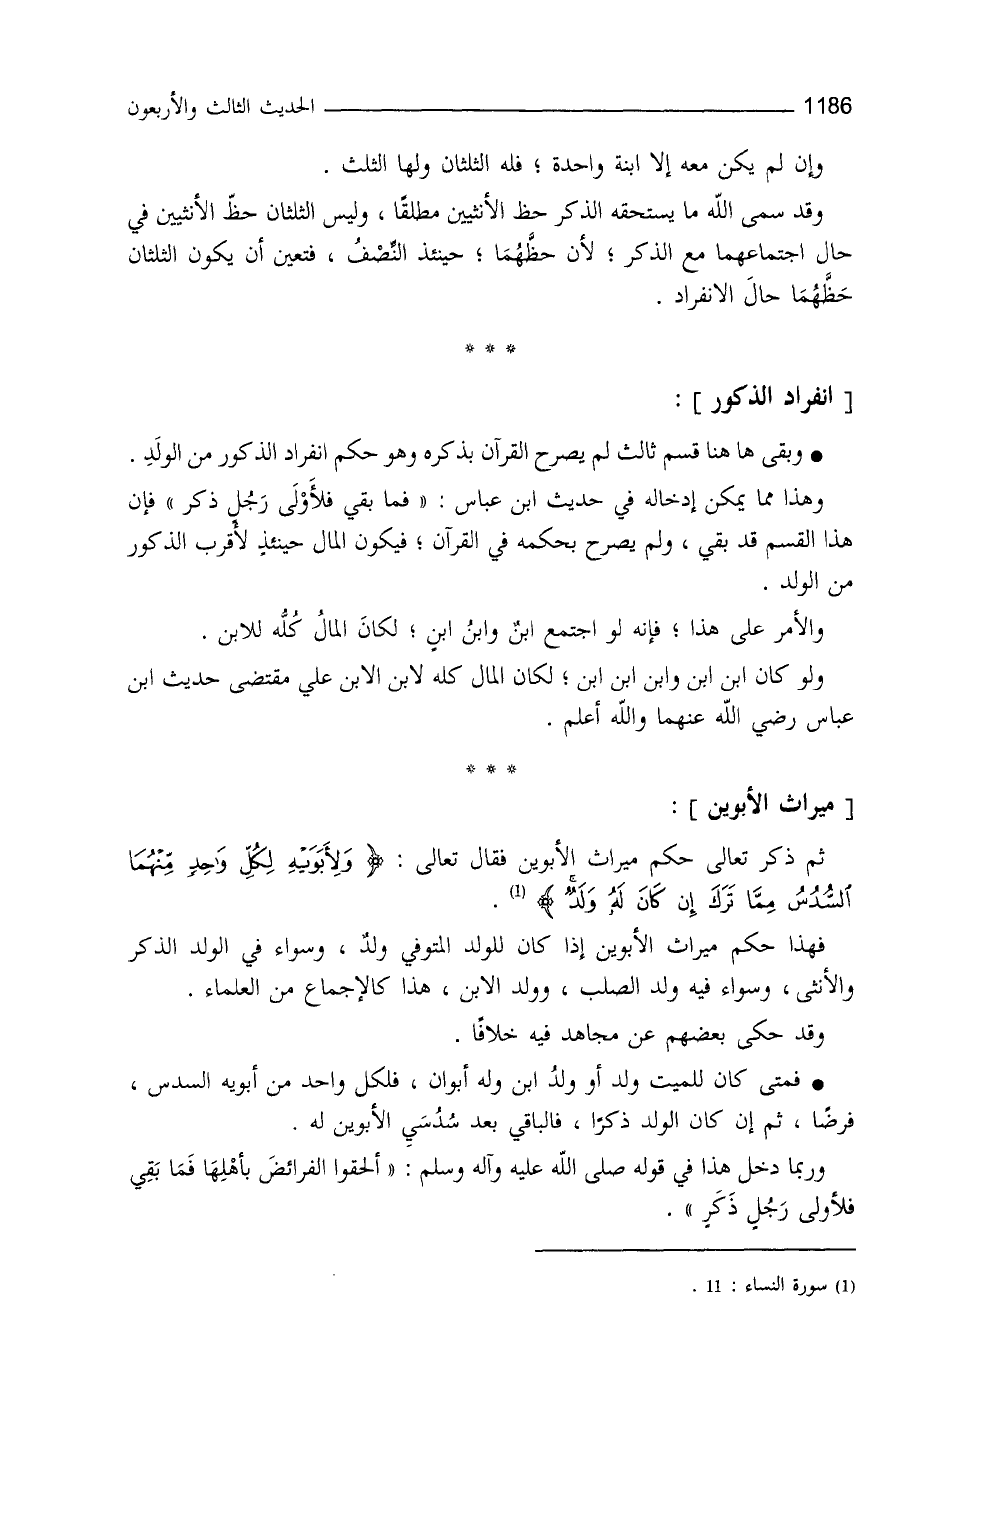 1186 الحديث الثالث والأربعون
وإن لم يكن معه إلا ابنة واحدة ؛ فله الثلثان ولها الثلث .
وقد سمى الله ما يستحقه الذكر حظ الأنثيين مطلقًا ، وليس الثلثان حظّ الأنثيين في
حال اجتماعهما مع الذكر ؛ لأن حظَّهُمَا ؛ حينئذ النِّصْفُ ، فتعين أن يكون الثلثان
حَظَّهُمَا حالَ الانفراد .
* * *
[ انفراد الذكور ] :
● وبقى ها هنا قسم ثالث لم يصرح القرآن بذكره وهو حكم انفراد الذكور من الولَدِ .
وهذا مما يمكن إدخاله في حديث ابن عباس : « فما بقي فلأَوْلَى رَجُلٍ ذكر » فإن
هذا القسم قد بقي ، ولم يصرح بحكمه في القرآن ؛ فيكون المال حينئذٍ لأَقرب الذكور
من الولد .
والأمر على هذا ؛ فإنه لو اجتمع ابنٌ وابنُ ابنٍ ؛ لكانَ المالُ كُلُّه للابن .
ولو كان ابن ابن وابن ابن ابن ؛ لكان المال كله لابن الابن علي مقتضى حديث ابن
عباس رضي الله عنهما والله أعلم .
* * *
[ ميراث الأبوين ] :
ثم ذكر تعالى حكم ميراث الأبوين فقال تعالى : ﴿ وَلِأَبَوَيْهِ لِكُلِّ وَٰحِدٍ مِّنْهُمَا
ٱلسُّدُسُ مِمَّا تَرَكَ إِن كَانَ لَهُۥ وَلَدٌ ﴾ (1) .
فهذا حكم ميراث الأبوين إذا كان للولد المتوفي ولدٌ ، وسواء في الولد الذكر
والأنثى ، وسواء فيه ولد الصلب ، وولد الابن ، هذا كالإجماع من العلماء .
وقد حكى بعضهم عن مجاهد فيه خلافًا .
● فمتى كان للميت ولد أو ولدُ ابن وله أبوان ، فلكل واحد من أبويه السدس ،
فرضًا ، ثم إن كان الولد ذكرًا ، فالباقي بعد سُدُسَيِ الأبوين له .
وربما دخل هذا في قوله صلى الله عليه وآله وسلم : « ألحقوا الفرائضَ بأهْلِهَا فَمَا بَقِي
فلأولى رَجُلٍ ذَكَرٍ » .
(1) سورة النساء : 11 .